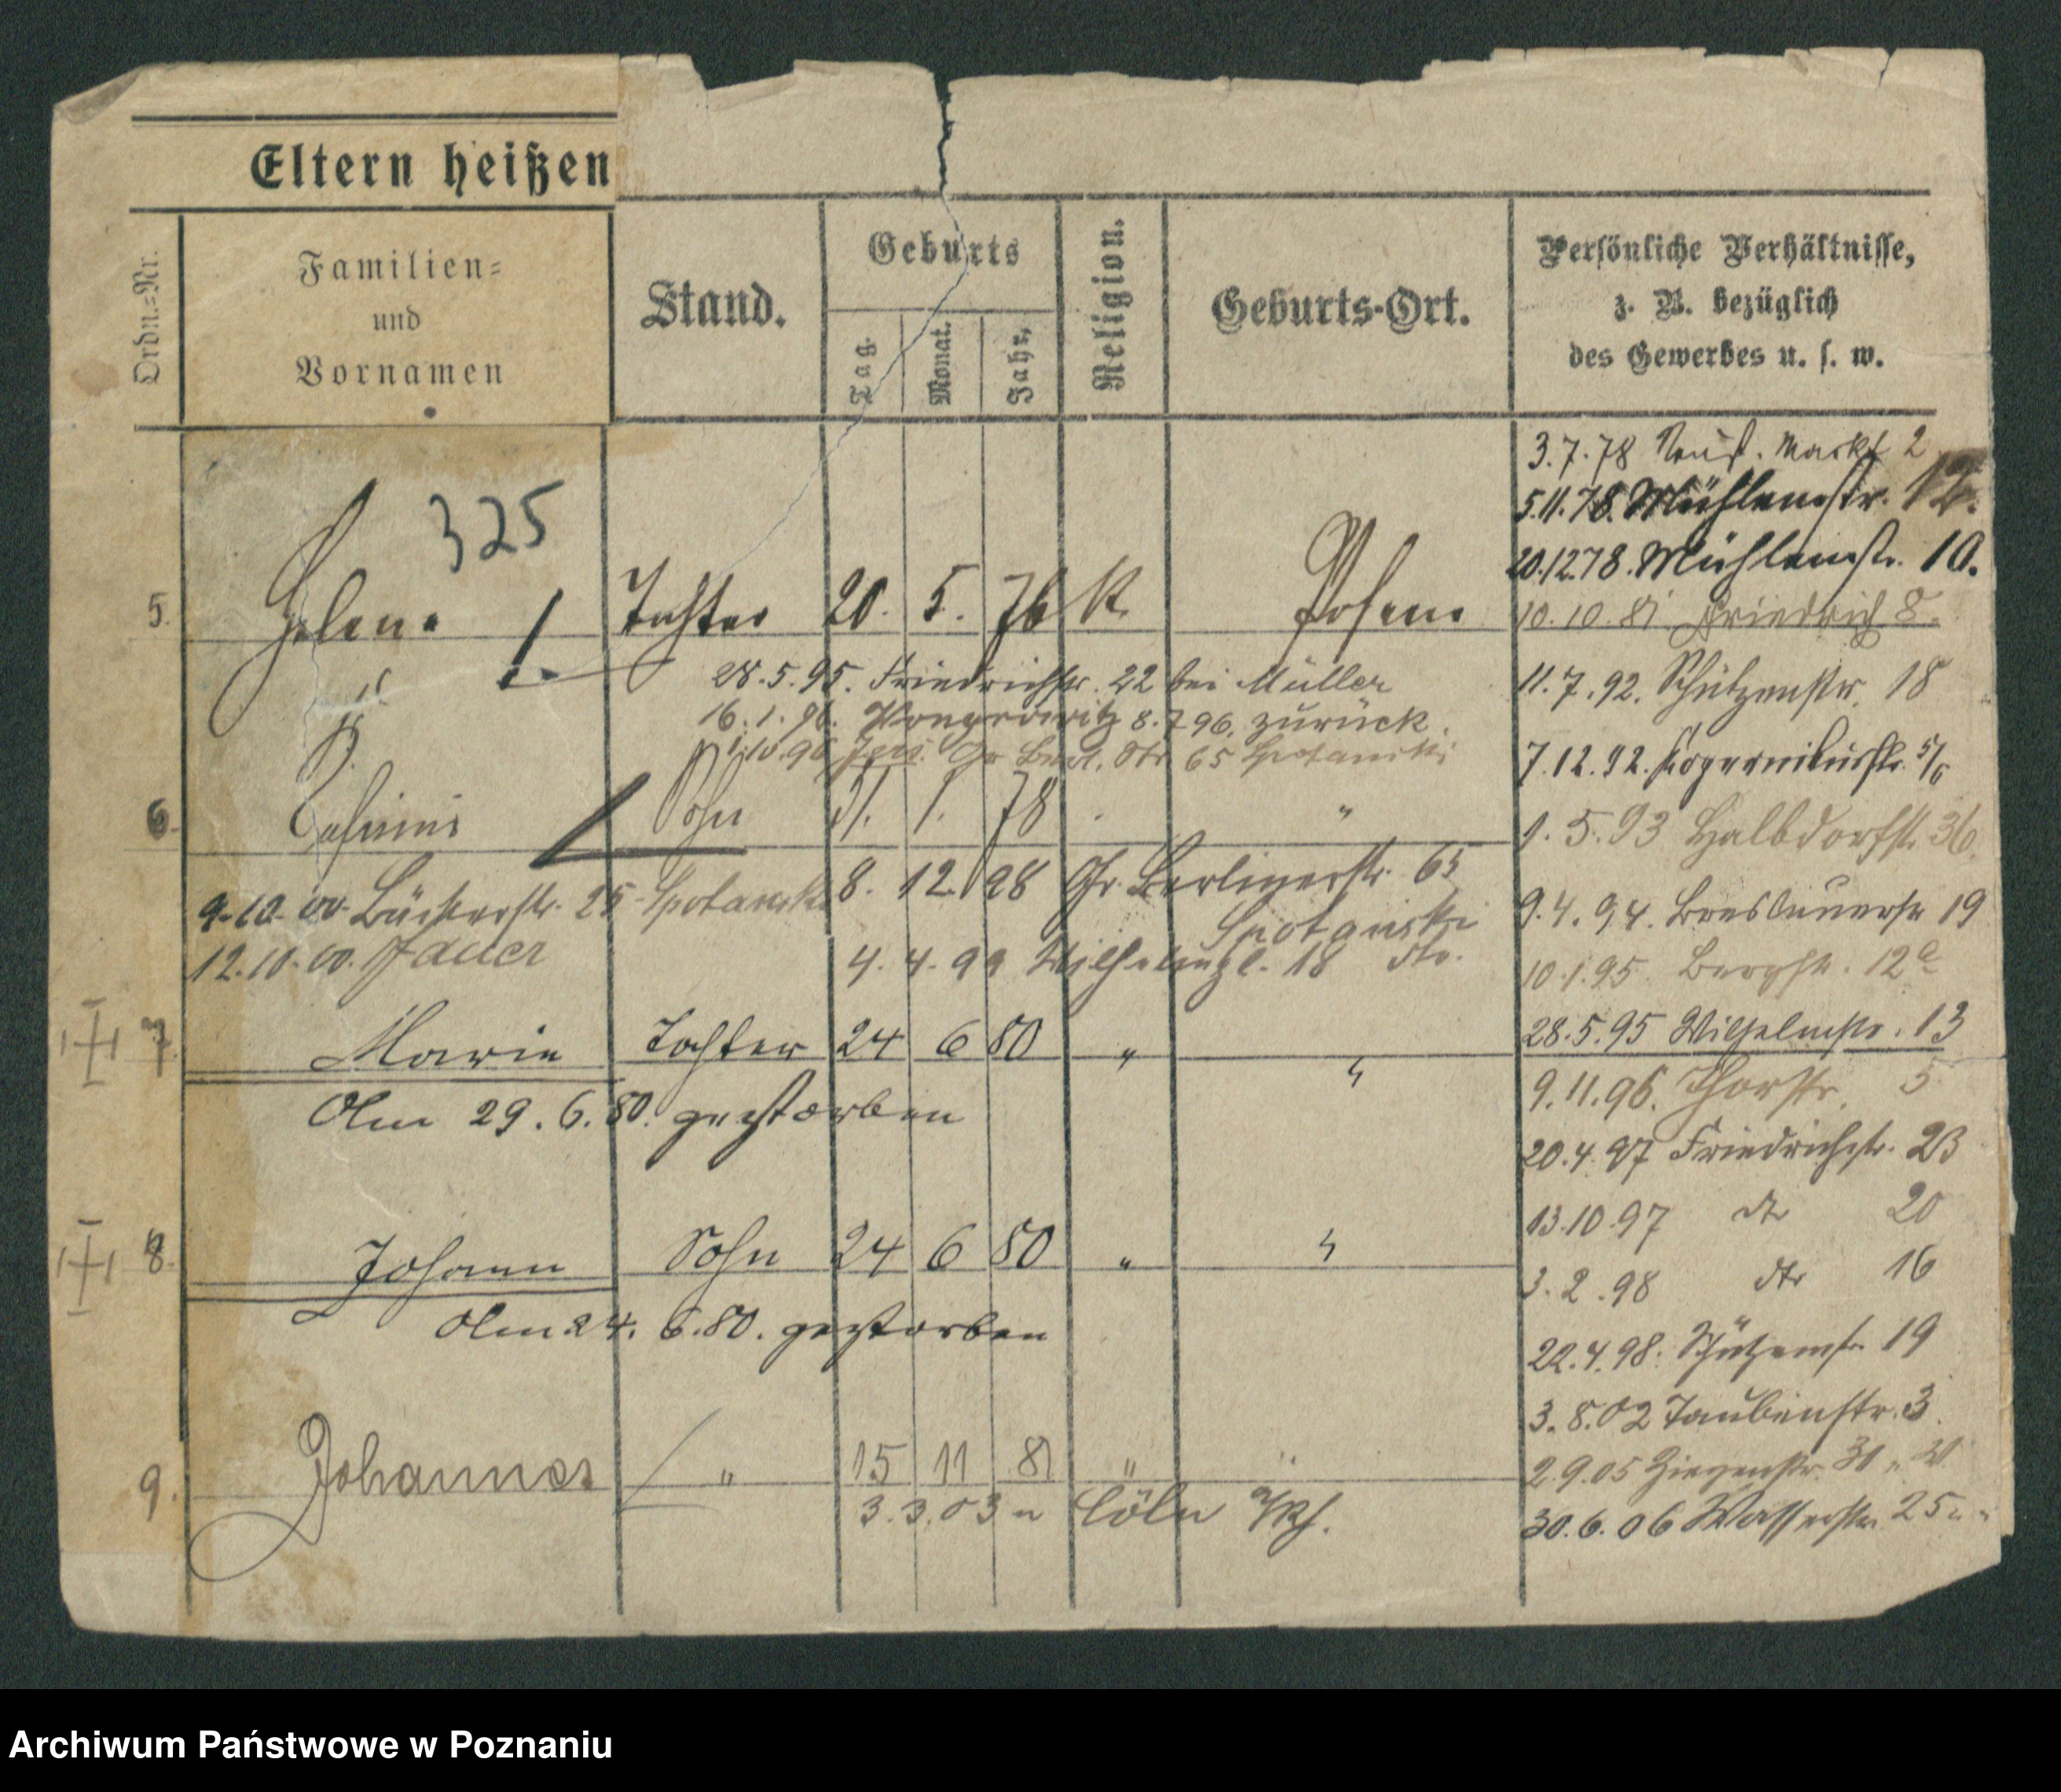 Eltern heißen
Ordn.=Nr.
Familien=
und
Vornamen
Stand.
Geburts
Tag.
Monat.
Jahr.
Religion.
Geburts-Ort.
Persönliche Verhältnisse,
z. B. bezüglich
des Gewerbes u. s. w.
325
5. Helene Tochter 20. 5. 76 K. Posen
28.5.95. Friedrichstr. 22 bei Müller
16.1.96. Wongrowitz 8.7.96. zurück.
Gr. Berl. Str 65 Spotanski
6. Sohn 31. 1. 78 "
8. 12. 98 Gr. Berlinerstr. 65
Spotanski
9.10.00. Bäckerstr. 25 Spotanski
4. 4. 99 Wilhelmspl. 18 dto.
12.10.00. Jauer
7. Marie Tochter 24 6 80 " "
Am 29. 6. 80. gestorben
8. Johann Sohn 24 6 80 " "
Am 24. 6. 80. gestorben
9. Johannes " 15 11 81 " "
3. 3. 03 n Cöln a/Rh.
3.7.78 Neust. Markt 2
5.11.78. Mühlenstr. 12.
20.12.78. Mühlenstr. 10.
10.10.81 Friedrich 8.
11.7.92. Schützenstr. 18
7.12.92. Kopernikusstr. 5/6
1.5.93 Halbdorfstr. 36.
9.4.94. Breslauerstr 19
10.1.95 Bergstr. 12a
28.5.95 Wilhelmstr. 13
9.11.96. Thorstr. 5
20.4.97 Friedrichstr. 23
13.10.97 dto 20
3.2.98 dto 16
22.4.98. Schützenstr. 19
3.8.02 Taubenstr. 3.
2.9.05 Ziegenstr.
30.6.06 Wasserstr. 25
Archiwum Państwowe w Poznaniu